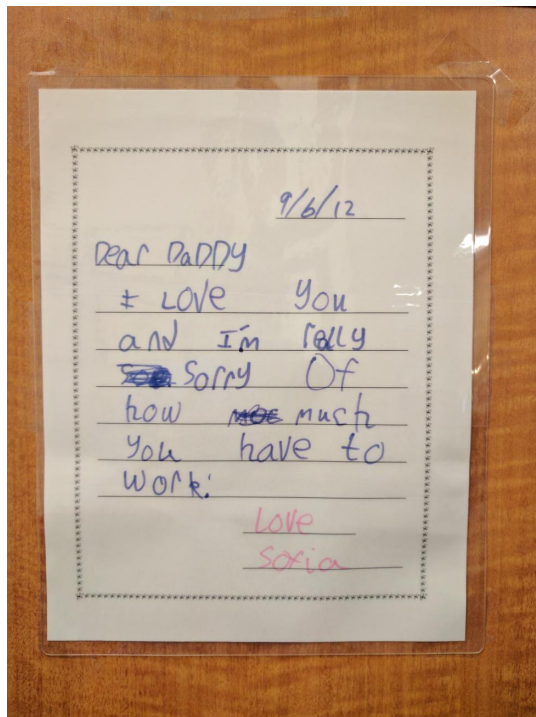 9/6/12
Dear DaDDy
I Love you
and I'm relly
Sorry Of
how much
you have to
work.
Love
Sofia